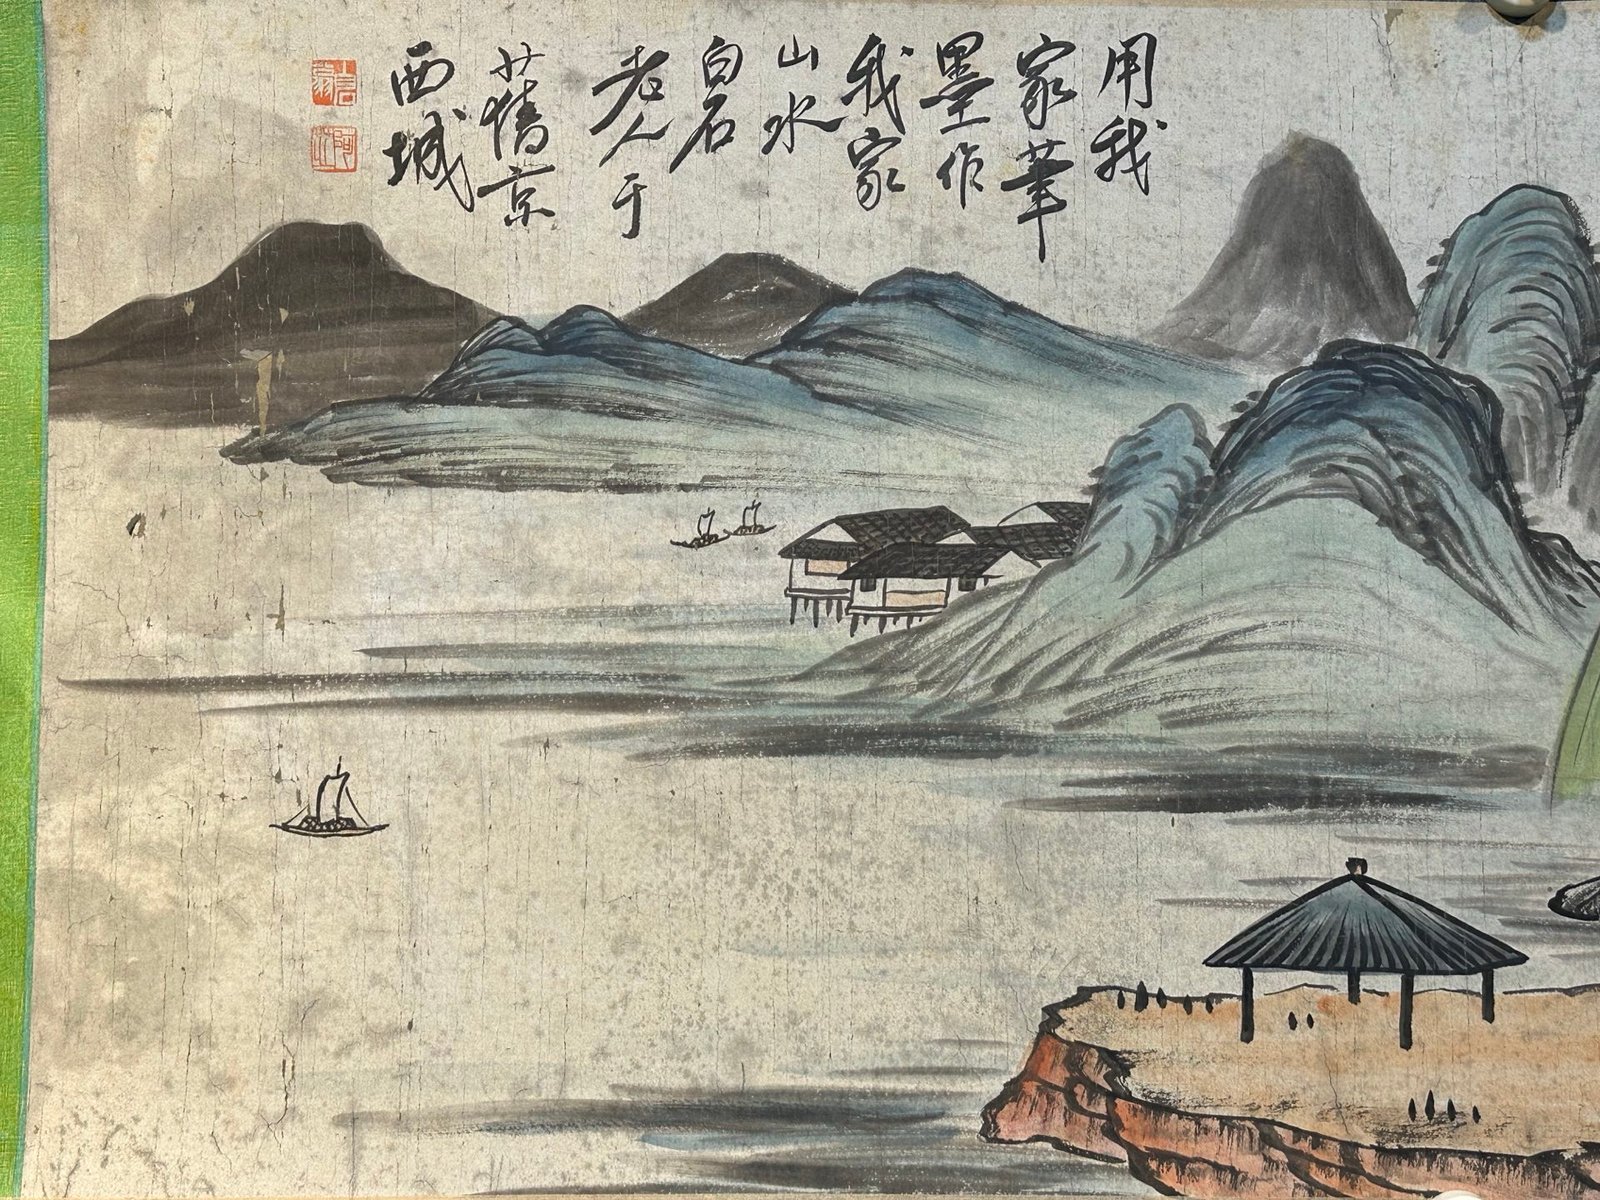 用我
家笔
墨作
我家
山水
白石
老人于
旧京
西城